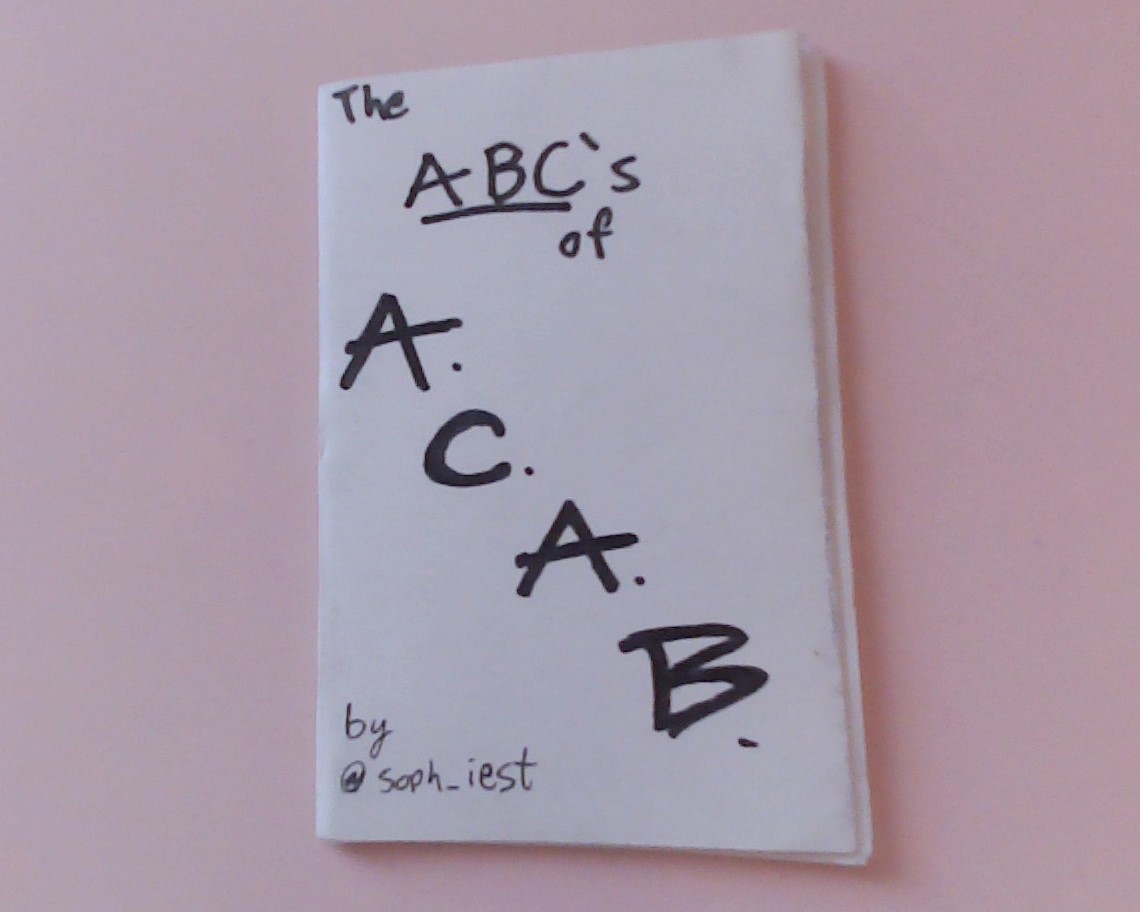 The
ABC's
of
A.
C.
A.
B.
by
@soph_iest